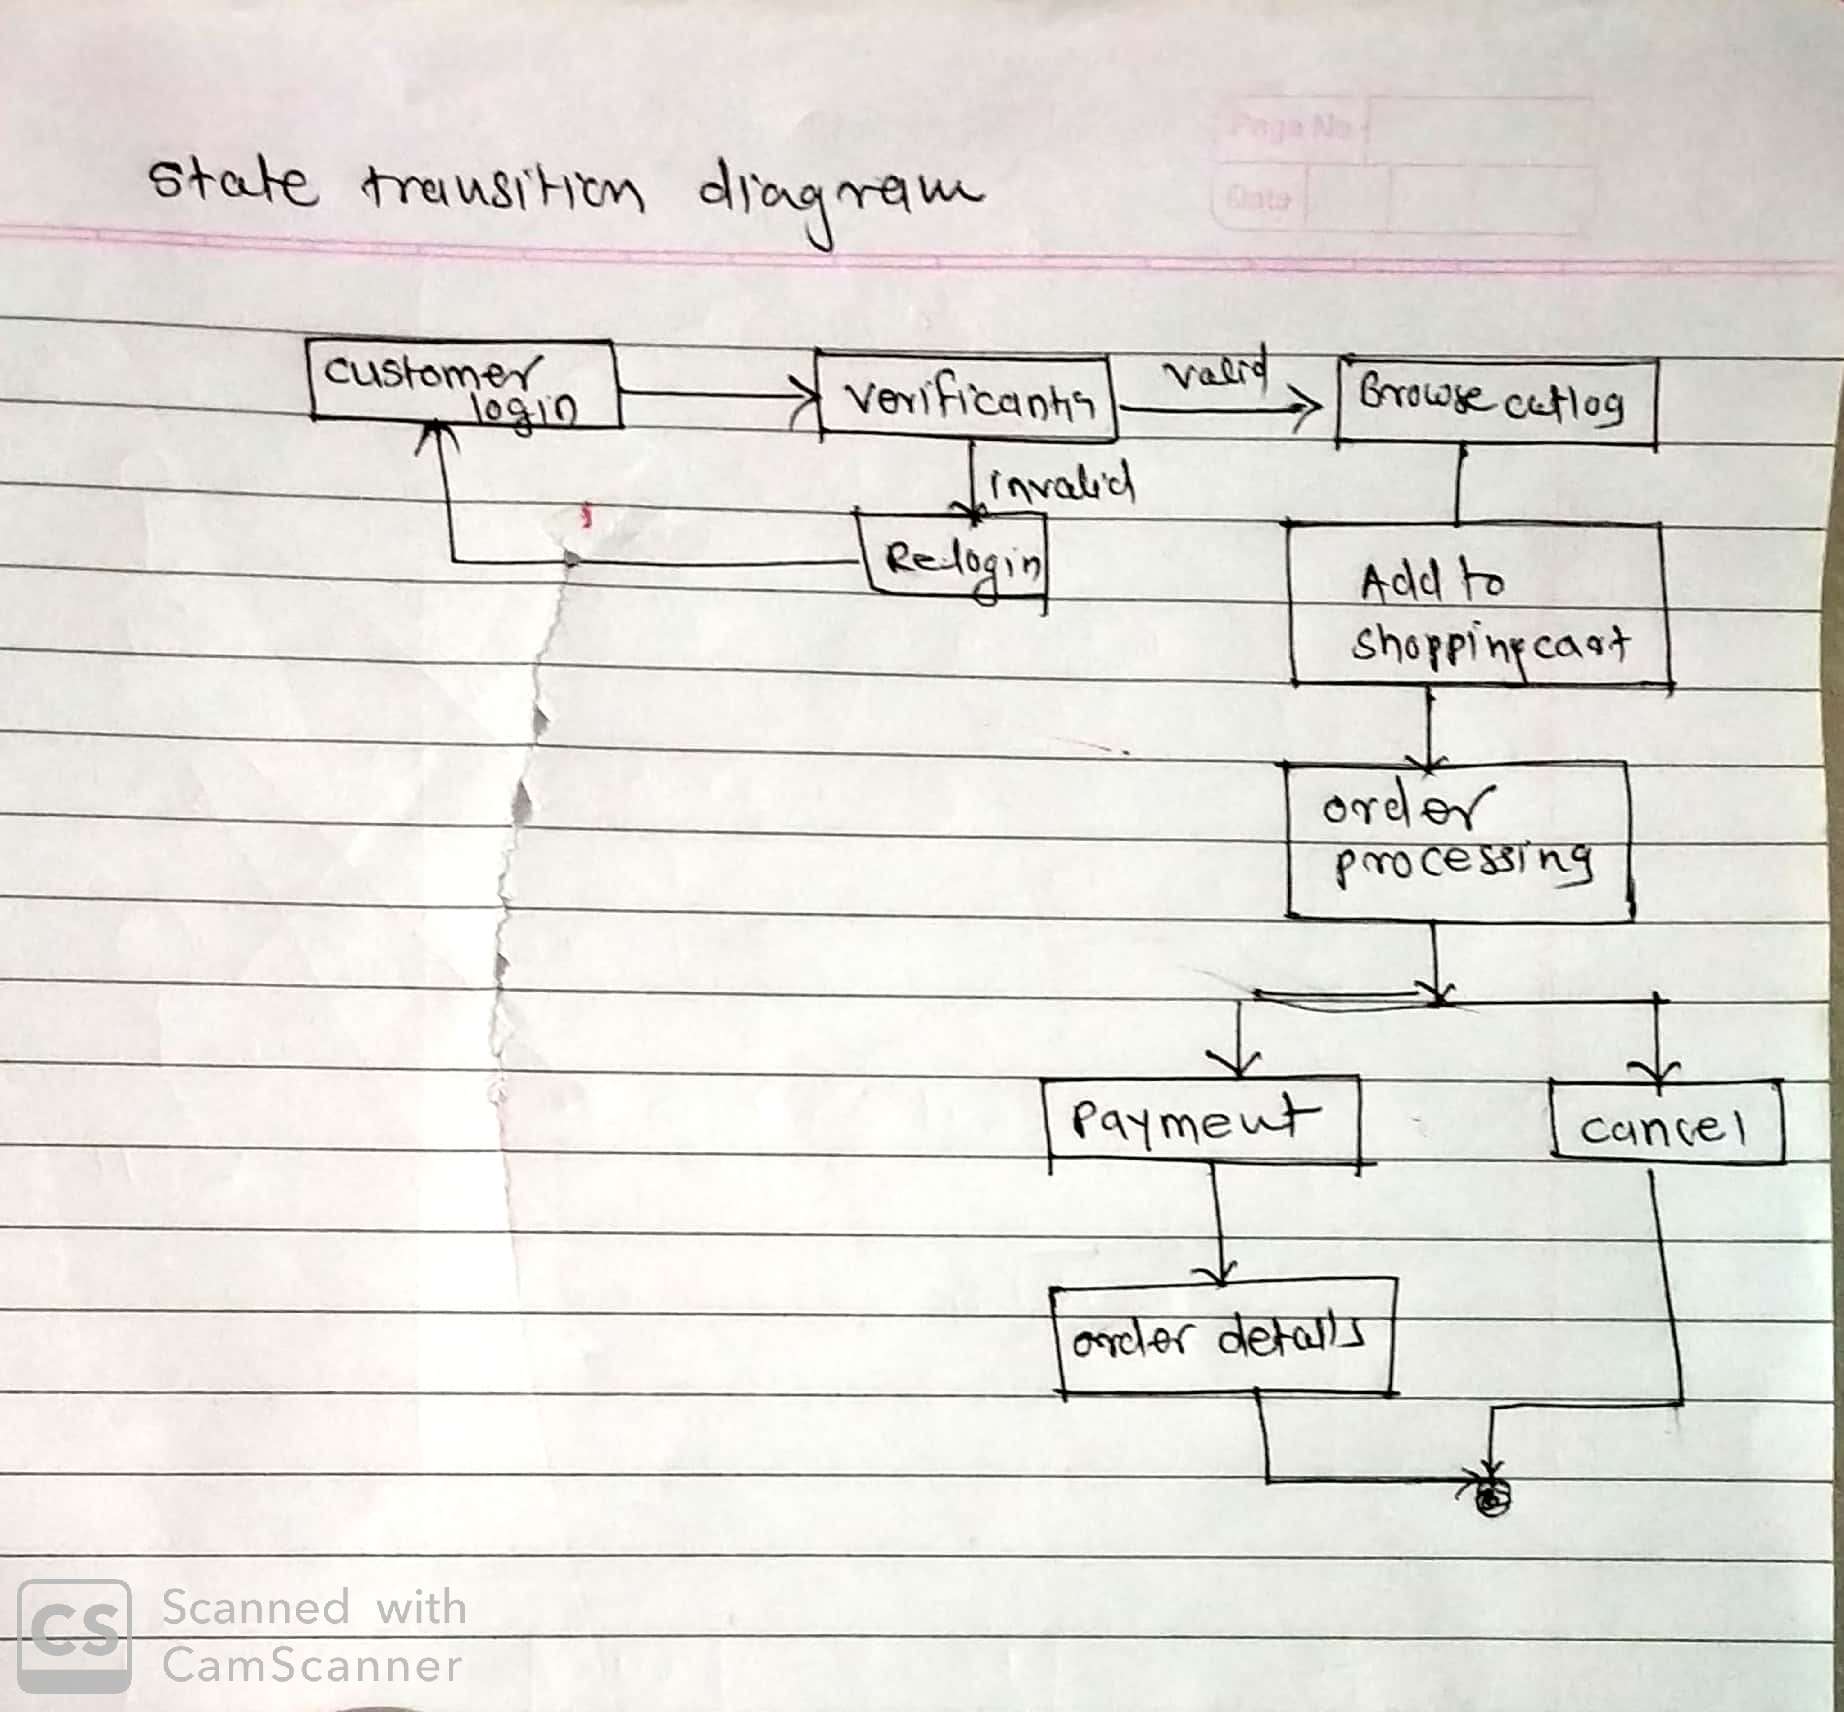 Page No
Date
state transition diagram
customer
login
verificantis
valid
Browse catlog
invalid
Re-login
Add to
shopping cart
order
processing
Payment
cancel
order details
CS
Scanned with
CamScanner